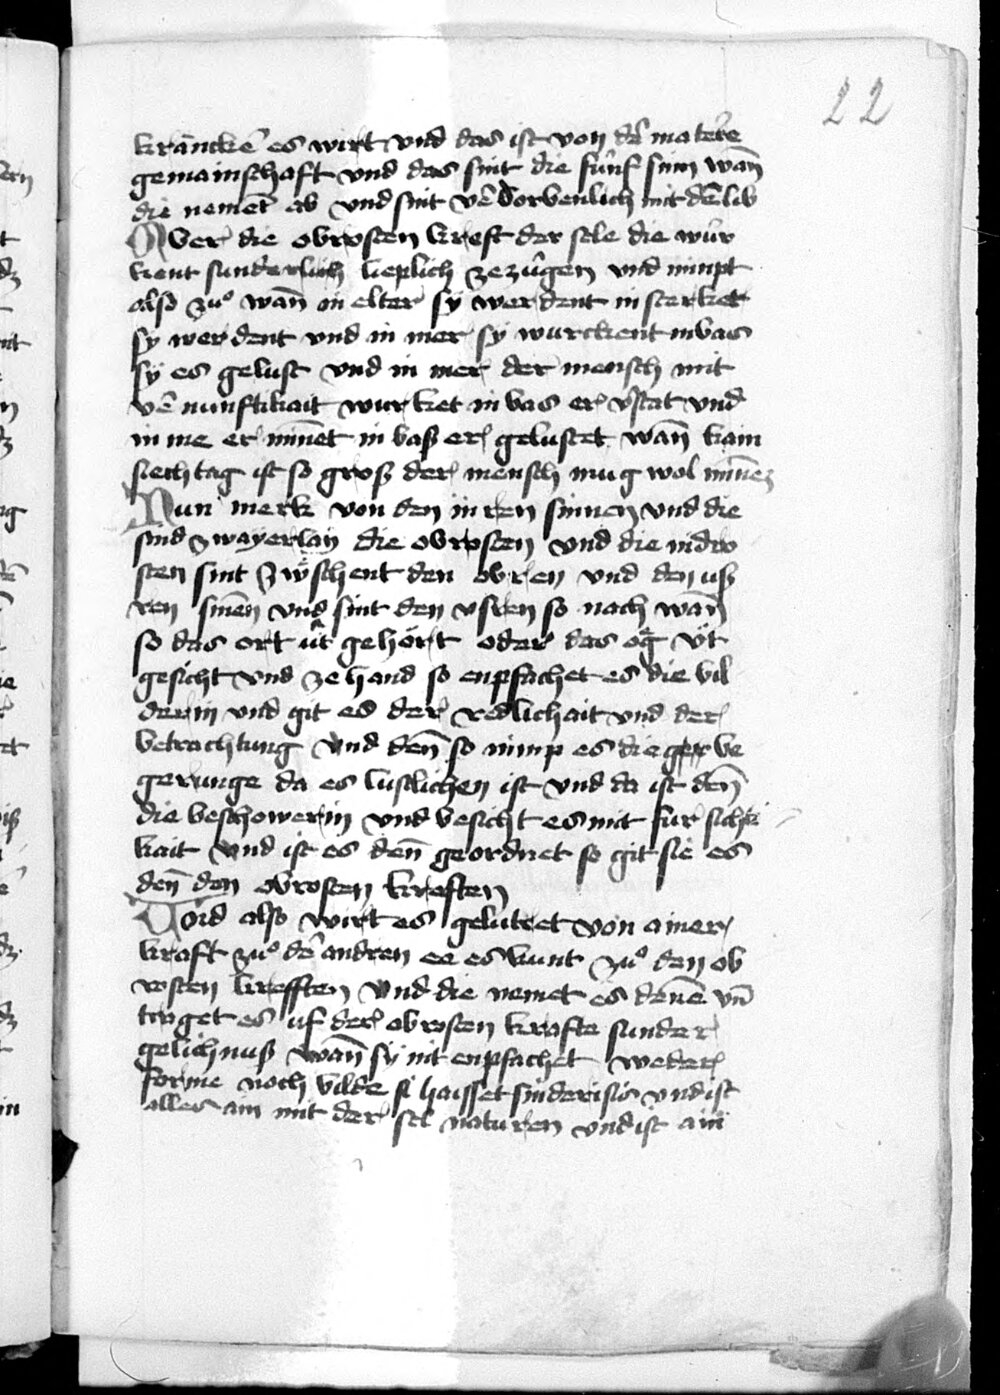 22
kränckē es wirt vnd das ist von dē materͤe
gemainschaft vnd das sint die fúnf sinn wan̄
die nement ab vnd sint v̄dorbenlich mit dē lib
Aber die obrosten kreft der sele die wúr
kent sunderlich lieplich ze zúgen vnd nimpt
also zuͦ wan̄ in elter sÿ werdent in sterker
sÿ werdent vnd in mer sÿ wurckent in bas
sÿ es gelust vnd in mer der mensch mit
v̄nunftikait wurket in bas er v̄stat vnd
in me er min̄et in baß er gelustet wan̄ kain
siechtag ist so groß der mensch mug wol min̄en
Nun merk von den inren sinnen vnd die
sind zwaÿerlaÿ die obrosten vnd die nidro
sten sint zwͥschent den obren vnd den uß
ren sin̄en vnd sint den vsren so nach wan̄
so das ort út gehört oder das og út
gesicht vnd ze hand so enpfachet es die bil
derin vnd git es der redlichait vnd der
betrachtung vnd den̄ so nimp es die ger be
gerunge da es lustlichen ist vnd da ist den̄
die beschowerin vnd besicht es mit fúr sichti
kait vnd ist es den̄ geordnet so git sie es
den̄ den obrosten kreften
Vnd also wirt es gelutret von ainer
kraft zuͦ dē andren ee es kunt zuͦ den ob
rosten krefften vnd die nemet es den̄e vn̄
traget es uf der obrosten krafte sunder
gelichnuß wan̄ sÿ nit enpfachet weder
forme noch bilde si haisset sinderisis vnd ist
alles ain mit der sel naturen vnd ist ain